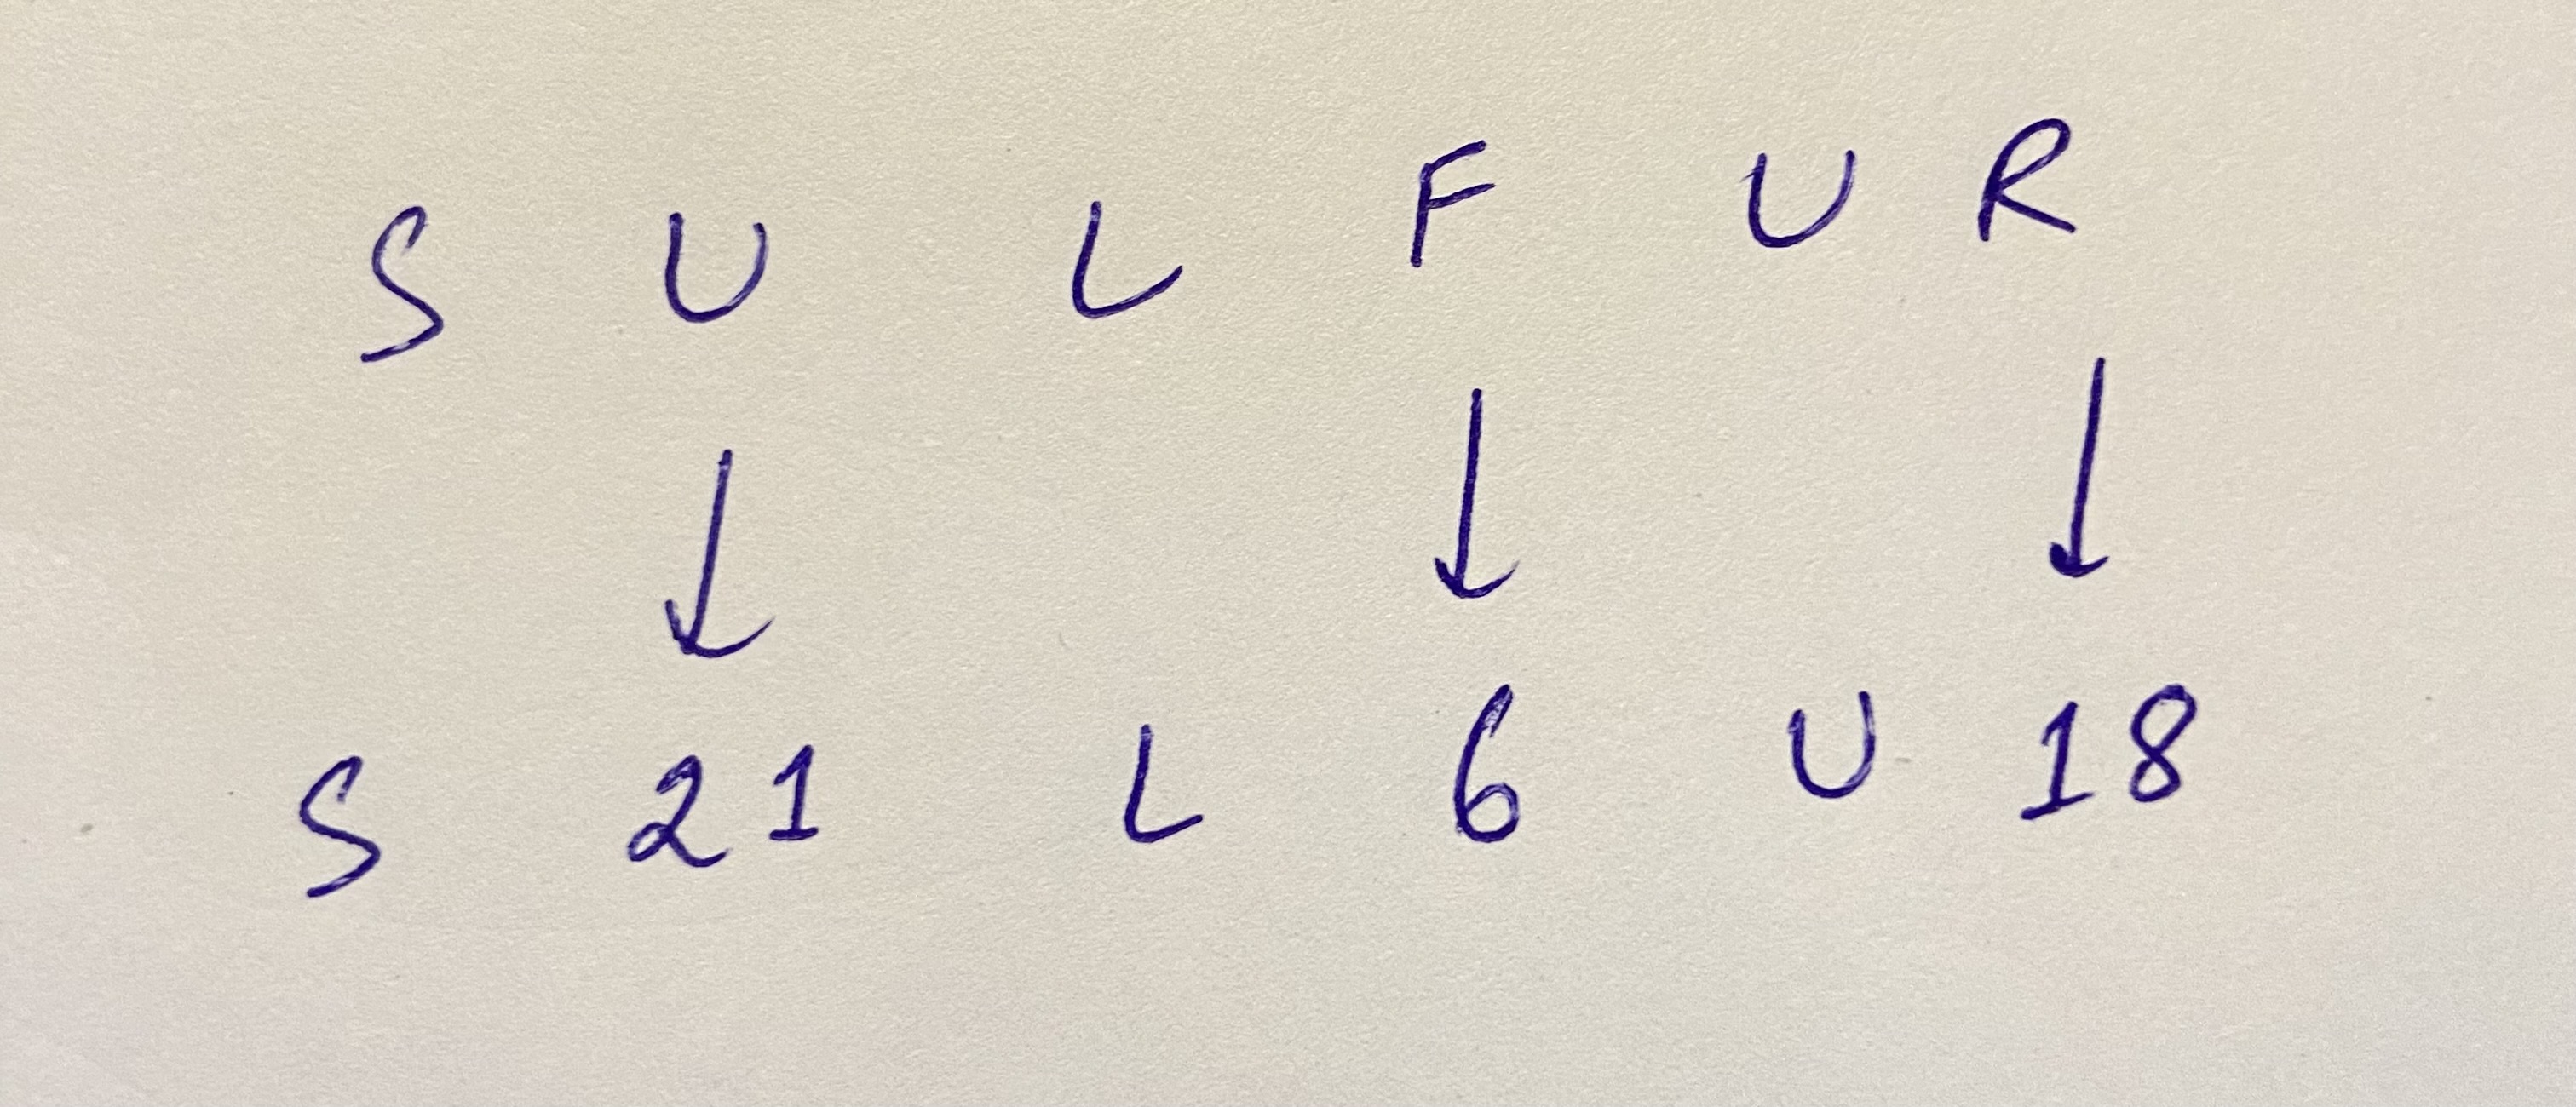 S U L F U R
S 21 L 6 U 18